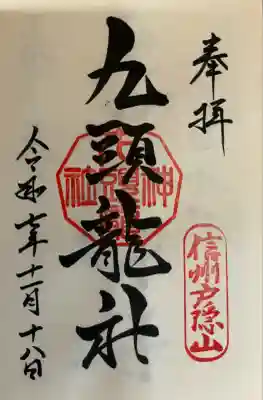 奉拝
信州戸隠山
九頭龍社
令和七年十一月十八日